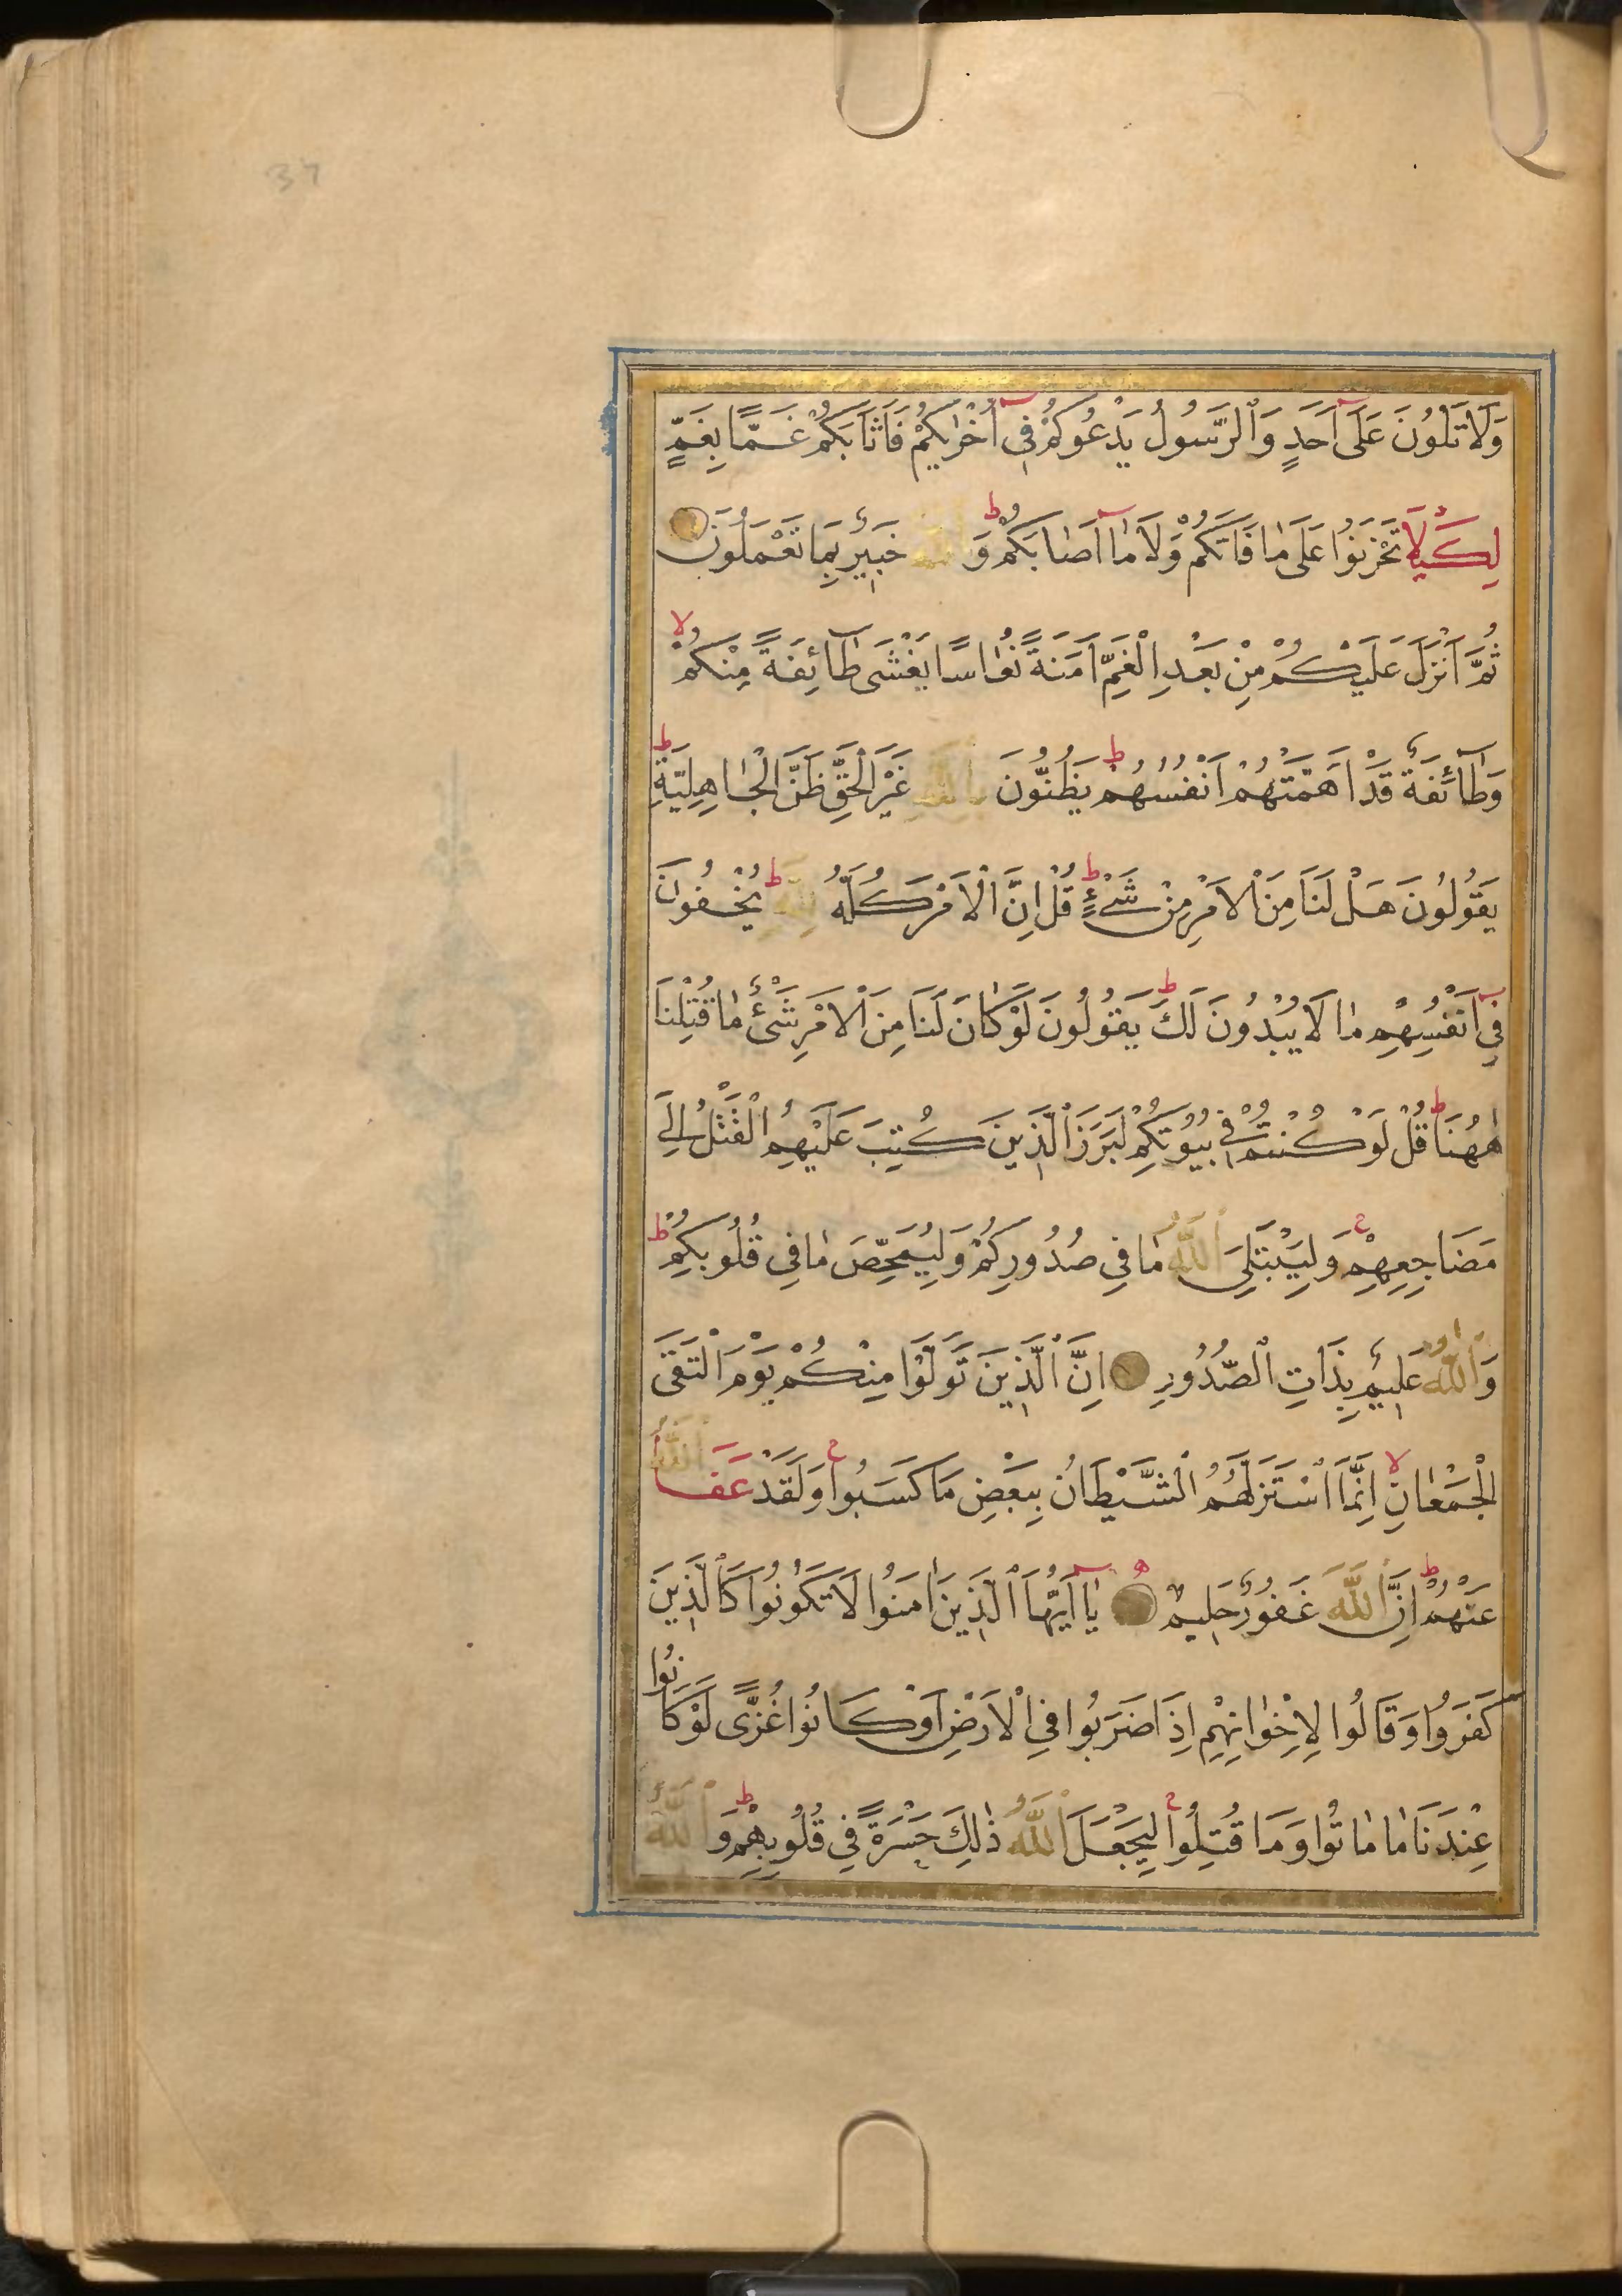 37
وَلَا تَلْوُنَ عَلَىٓ اَحَدٍ وَٱلرَّسُولُ يَدْعُوكُمْ فِىٓ اُخْرٰىكُمْ فَاَثَابَكُمْ غَمًّا بِغَمٍّ
لِكَيْلَا تَحْزَنُوا عَلَى مٰا فَاتَكُمْ وَلَا مٰٓا اَصٰابَكُمْ ط وَٱللّٰهُ خَبِيرٌ بِمَا تَعْمَلُونَ
ثُمَّ اَنْزَلَ عَلَيْكُمْ مِنْ بَعْدِ الْغَمِّ اَمَنَةً نُعٰاسًا يَغْشَى طٰٓائِفَةً مِنْكُمْ لا
وَطٰٓائِفَةٌ قَدْ اَهَمَّتْهُمْ اَنْفُسُهُمْ ط يَظُنُّونَ بِٱللّٰهِ غَيْرَ الْحَقِّ ظَنَّ الْجٰاهِلِيَّةِ ط
يَقُولُونَ هَلْ لَنَا مِنَ الْاَمْرِ مِنْ شَىْءٍ ط قُلْ اِنَّ الْاَمْرَ كُلَّهُ لِلّٰهِ ط يُخْفُونَ
فِىٓ اَنْفُسِهِمْ مٰا لَا يُبْدُونَ لَكَ ط يَقُولُونَ لَوْ كَانَ لَنَا مِنَ الْاَمْرِ شَىْءٌ مٰا قُتِلْنَا
هٰهُنَا ط قُلْ لَوْ كُنْتُمْ فِى بُيُوتِكُمْ لَبَرَزَ ٱلَّذِينَ كُتِبَ عَلَيْهِمُ ٱلْقَتْلُ اِلَى
مَضَاجِعِهِمْ ج وَلِيَبْتَلِىَ ٱللّٰهُ مٰا فِى صُدُورِكُمْ وَلِيُمَحِّصَ مٰا فِى قُلُوبِكُمْ ط
وَٱللّٰهُ عَلِيمٌ بِذَاتِ ٱلصُّدُورِ اِنَّ ٱلَّذِينَ تَوَلَّوْا مِنْكُمْ يَوْمَ الْتَقَى
الْجَمْعٰانِ لا اِنَّمَا ٱسْتَزَلَّهُمُ ٱلشَّيْطَانُ بِبَعْضِ مَا كَسَبُوا ج وَلَقَدْ عَفَا ٱللّٰهُ
عَنْهُمْ ط اِنَّ ٱللّٰهَ غَفُورٌ حَلِيمٌ يٰٓا اَيُّهَا ٱلَّذِينَ اٰمَنُوا لَا تَكُونُوا كَٱلَّذِينَ
كَفَرُوا وَقَالُوا لِاِخْوٰانِهِمْ اِذَا ضَرَبُوا فِى الْاَرْضِ اَوْ كَانُوا غُزًّى لَوْ كَانُوا
عِنْدَنَا مٰا مٰاتُوا وَمَا قُتِلُوا ج لِيَجْعَلَ ٱللّٰهُ ذٰلِكَ حَسْرَةً فِى قُلُوبِهِمْ ط وَٱللّٰهُ